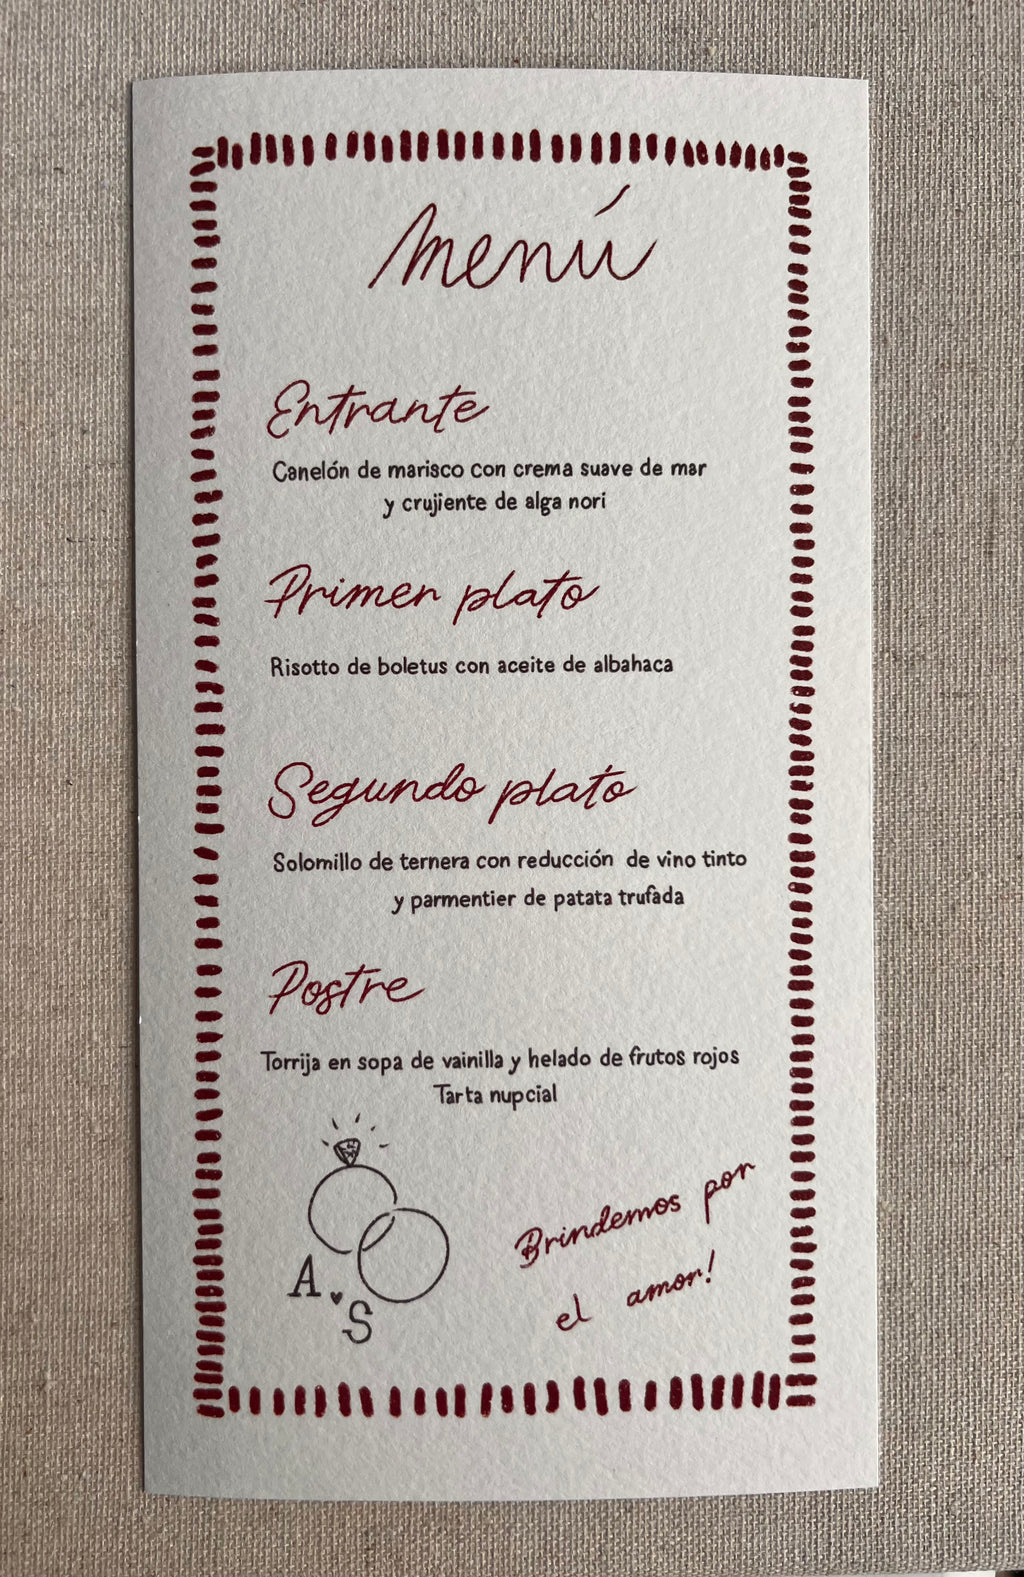 menú
Entrante
Canelón de marisco con crema suave de mar
y crujiente de alga nori
Primer plato
Risotto de boletus con aceite de albahaca
Segundo plato
Solomillo de ternera con reducción de vino tinto
y parmentier de patata trufada
Postre
Torrija en sopa de vainilla y helado de frutos rojos
Tarta nupcial
A ♥ S
Brindemos por
el amor!